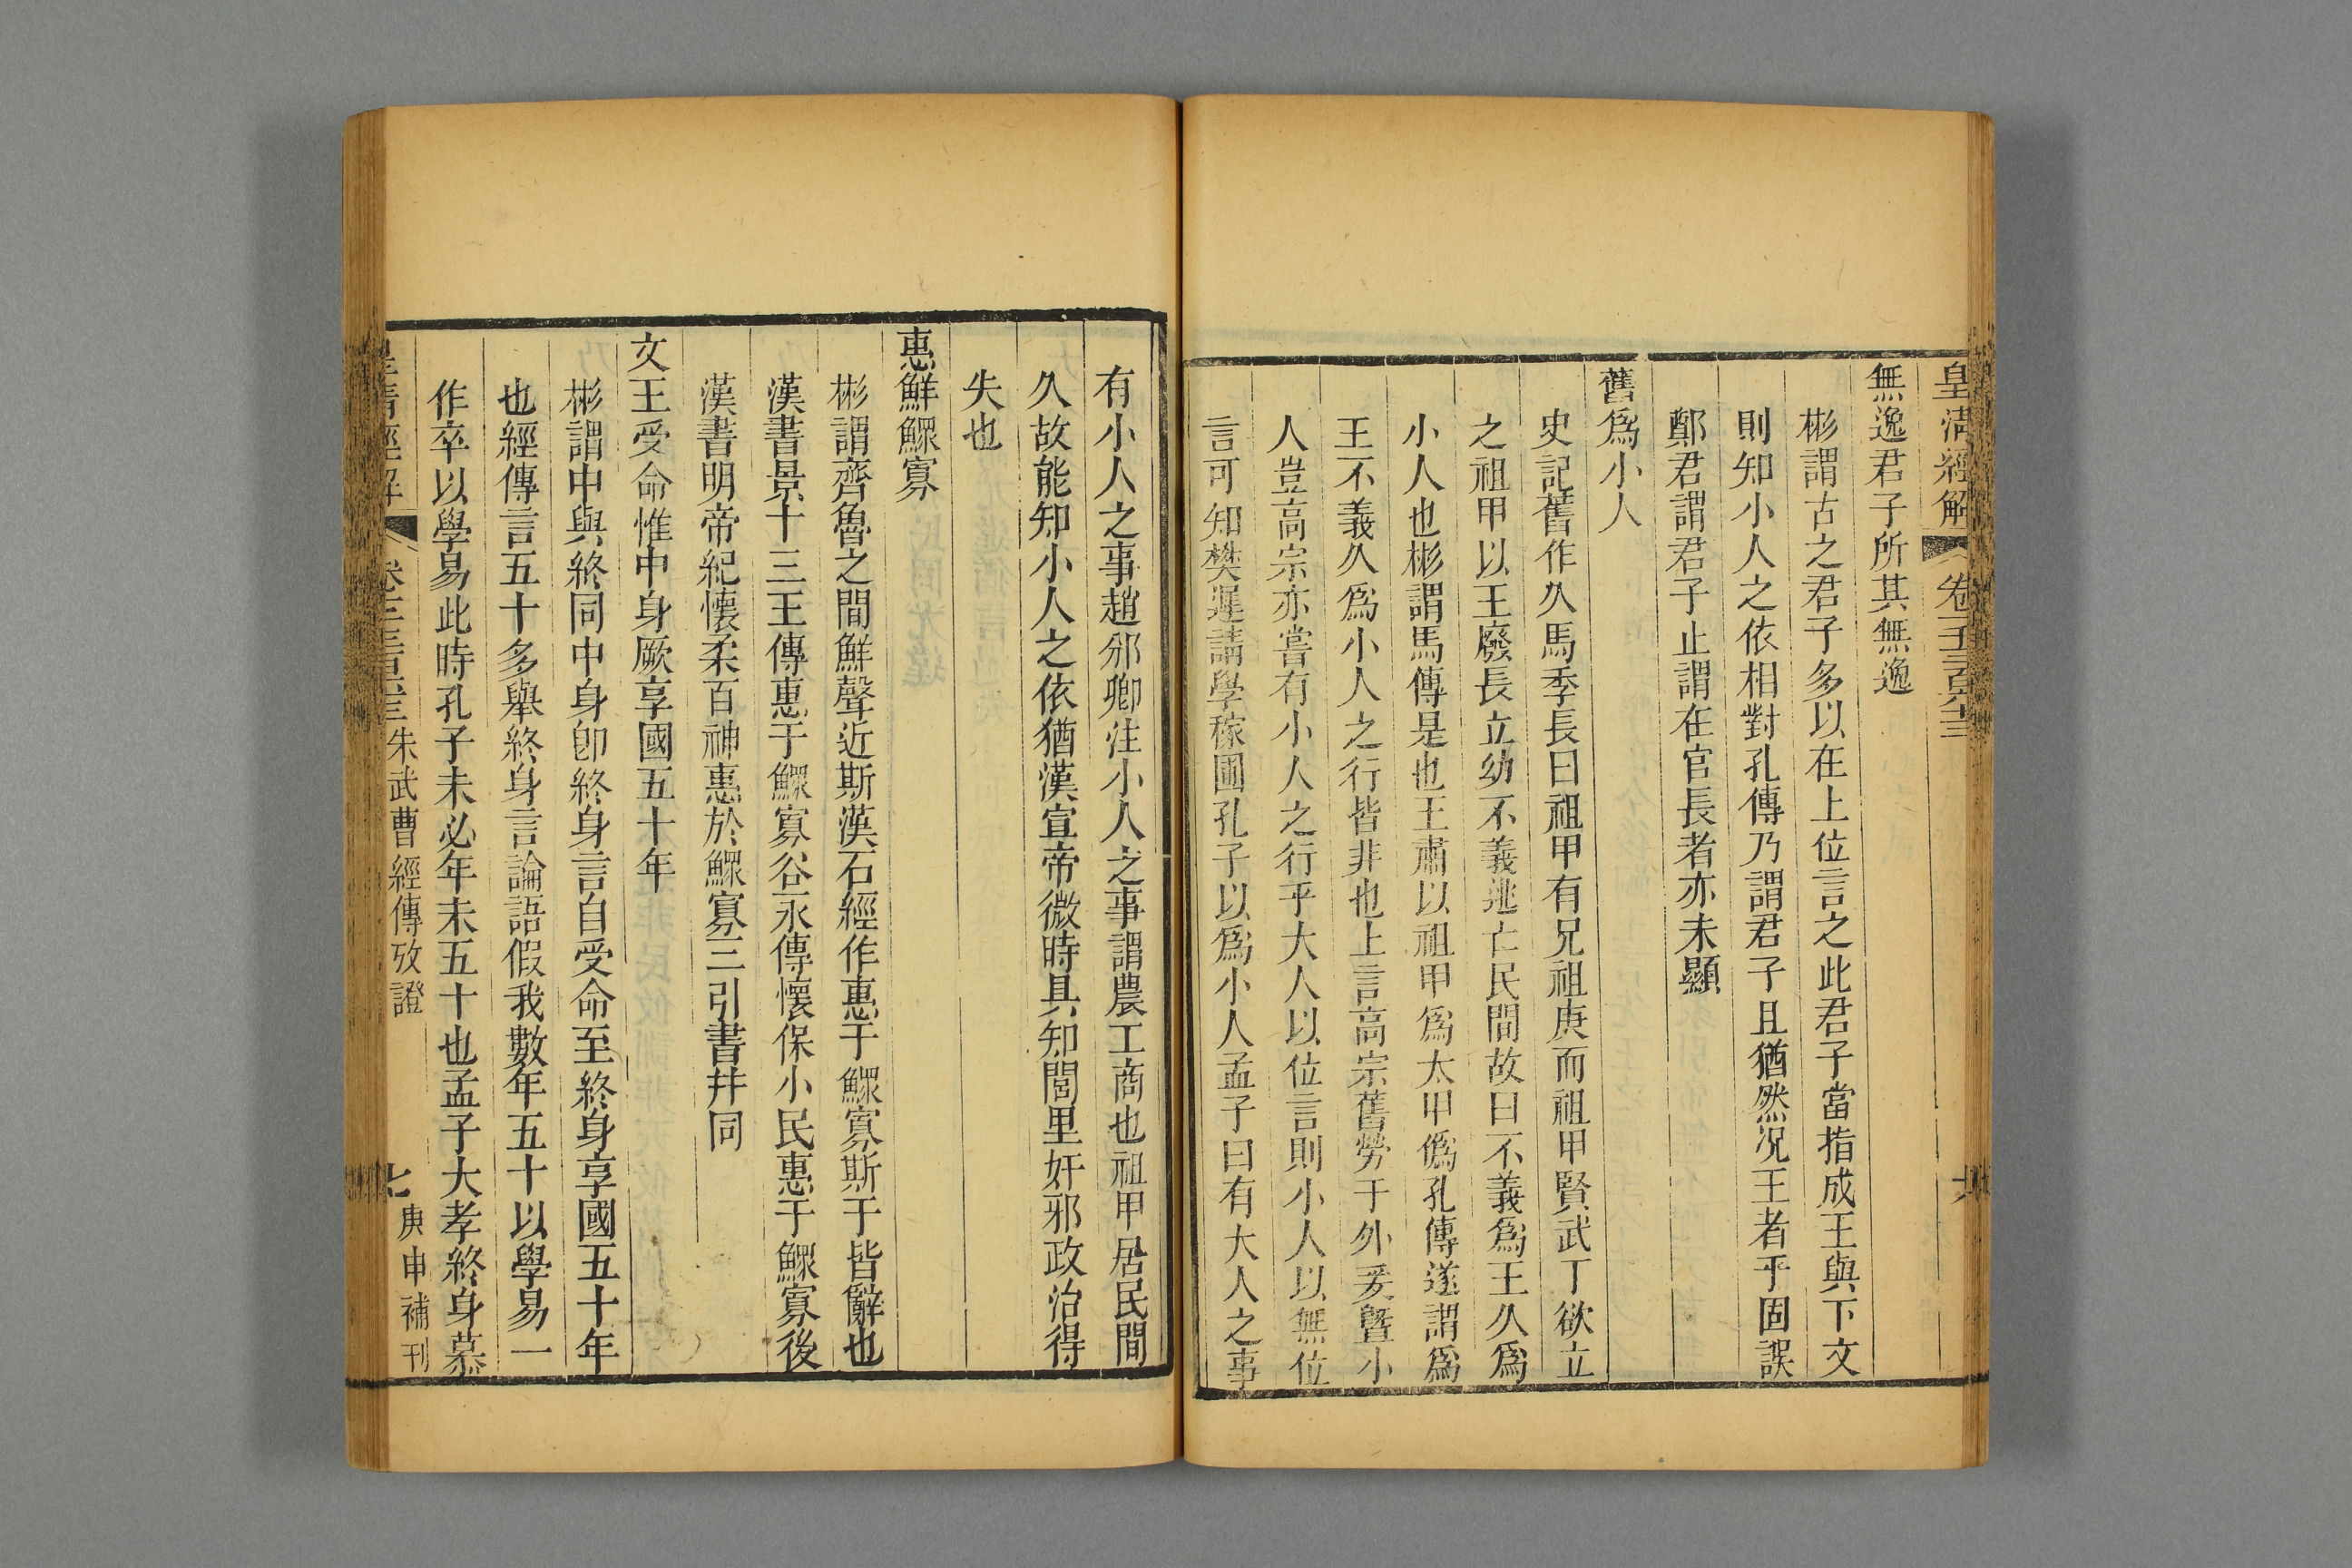 皇清經解 卷
無逸君子所其無逸
彬謂古之君子多以在上位言之此君子當指成王與下文
則知小人之依相對孔傳乃謂君子且猶然况王者乎固誤
鄭君謂君子止謂在官長者亦未顯
舊爲小人
史記舊作久馬季長曰祖甲有兄祖庚而祖甲賢武丁欲立
之祖甲以王廢長立幼不義逃亡民間故曰不義爲王久爲
小人也彬謂馬傳是也王肅以祖甲爲太甲僞孔傳遂謂爲
王不義久爲小人之行皆非也上言高宗舊勞于外爰曁小
人豈高宗亦嘗有小人之行乎大人以位言則小人以無位
言可知樊遲請學稼圃孔子以爲小人孟子曰有大人之事
有小人之事趙邠卿注小人之事謂農工商也祖甲居民間
久故能知小人之依猶漢宣帝微時具知閭里奸邪政治得
失也
惠鮮鰥寡
彬謂齊魯之間鮮聲近斯漢石經作惠于鰥寡斯于皆辭也
漢書景十三王傳惠于鰥寡谷永傳懷保小民惠于鰥寡後
漢書明帝紀懷柔百神惠於鰥寡三引書幷同
文王受命惟中身厥享國五十年
彬謂中與終同中身卽終身言自受命至終身享國五十年
也經傳言五十多舉終身言論語假我數年五十以學易一
作卒以學易此時孔子未必年未五十也孟子大孝終身慕
皇清經解 朱武曹經傳攷證 七 庚申補刊